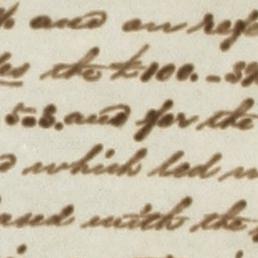 and on refe
the £100.-3
5-3. and for the
which led
and with the